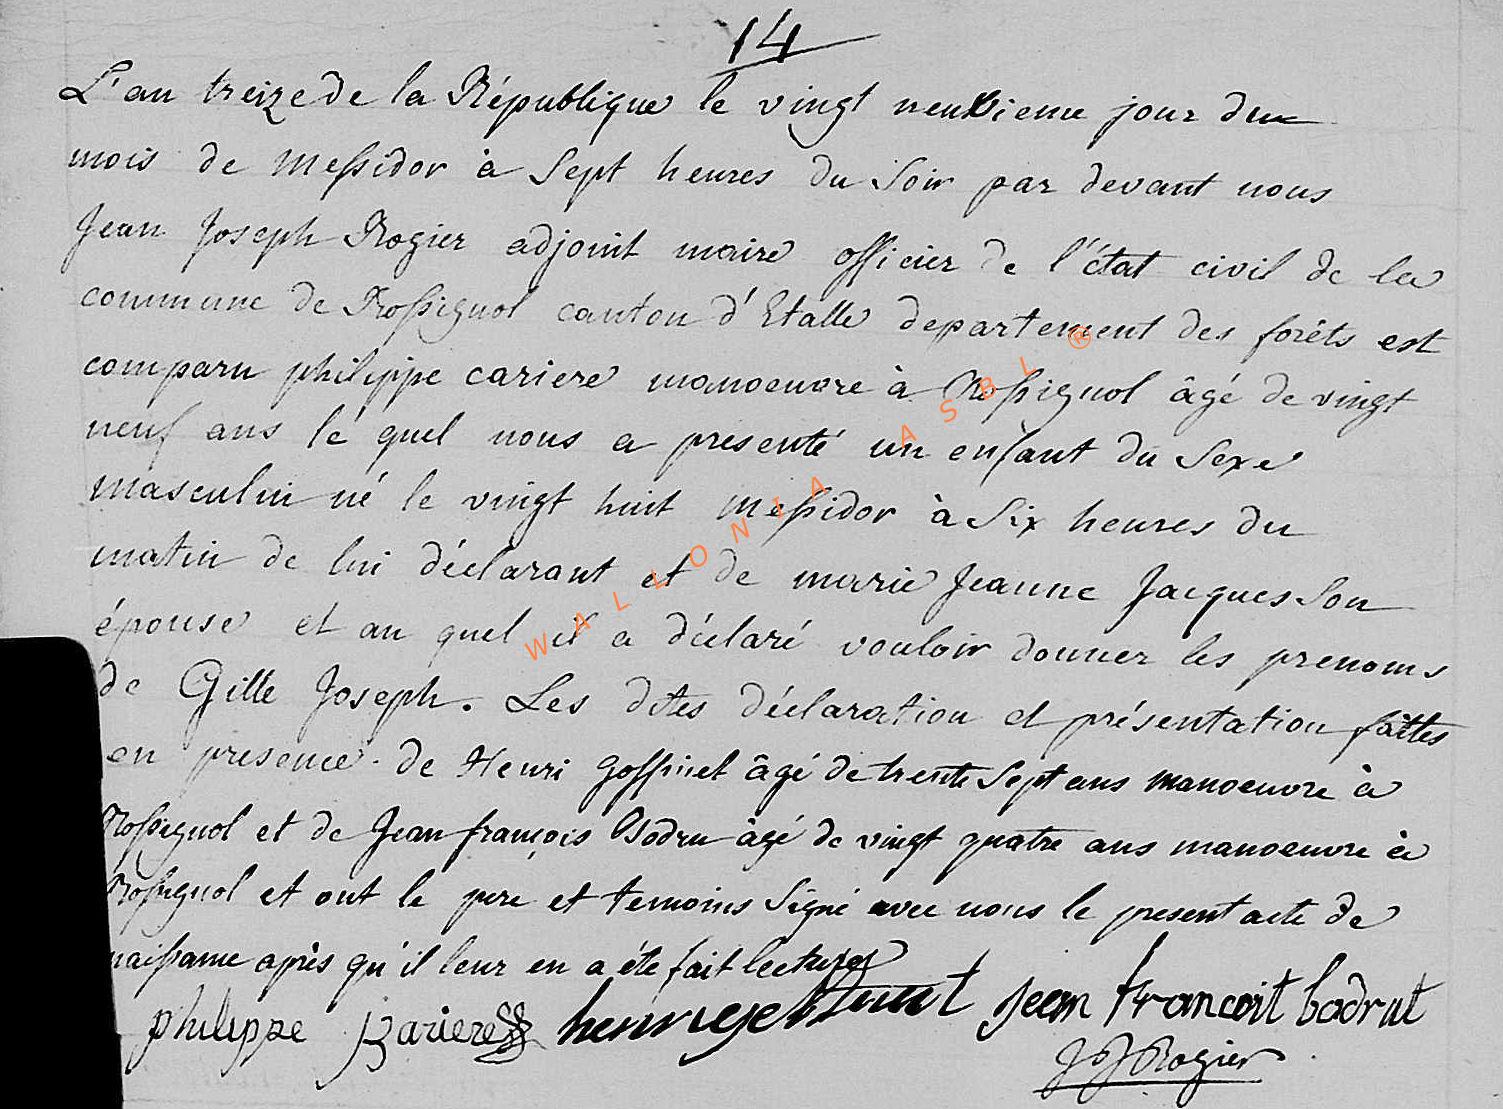 14
L'an treize de la République le vingt neuvieme jour du
mois de Messidor à Sept heures du Soir par devant nous
Jean Joseph Rogier adjoint maire officier de l'état civil de la
commune de Rossignol canton d'Etalle departement des forêts est
comparu philippe cariere manoeuvre à Rossignol âgé de vingt
neuf ans le quel nous a presenté un enfant du Sexe
masculin né le vingt huit Messidor à Six heures du
matin de lui déclarant et de marie Jeanne Jacques Son
épouse et au quel il a déclaré vouloir donner les prenoms
de Gille Joseph. Les dites déclaration et présentation faittes
en presence de Henri goffinet âgé de trente Sept ans manoeuvre à
Rossignol et de Jean françois Badru âgé de vingt quatre ans manoeuvre à
Rossignol et ont le pere et temoins Signé avec nous le present acte de
naissance après qu'il leur en a été fait lecture
philippe kariere jean francoit badrut
J J Rogier
WALLONIA ASBL ®